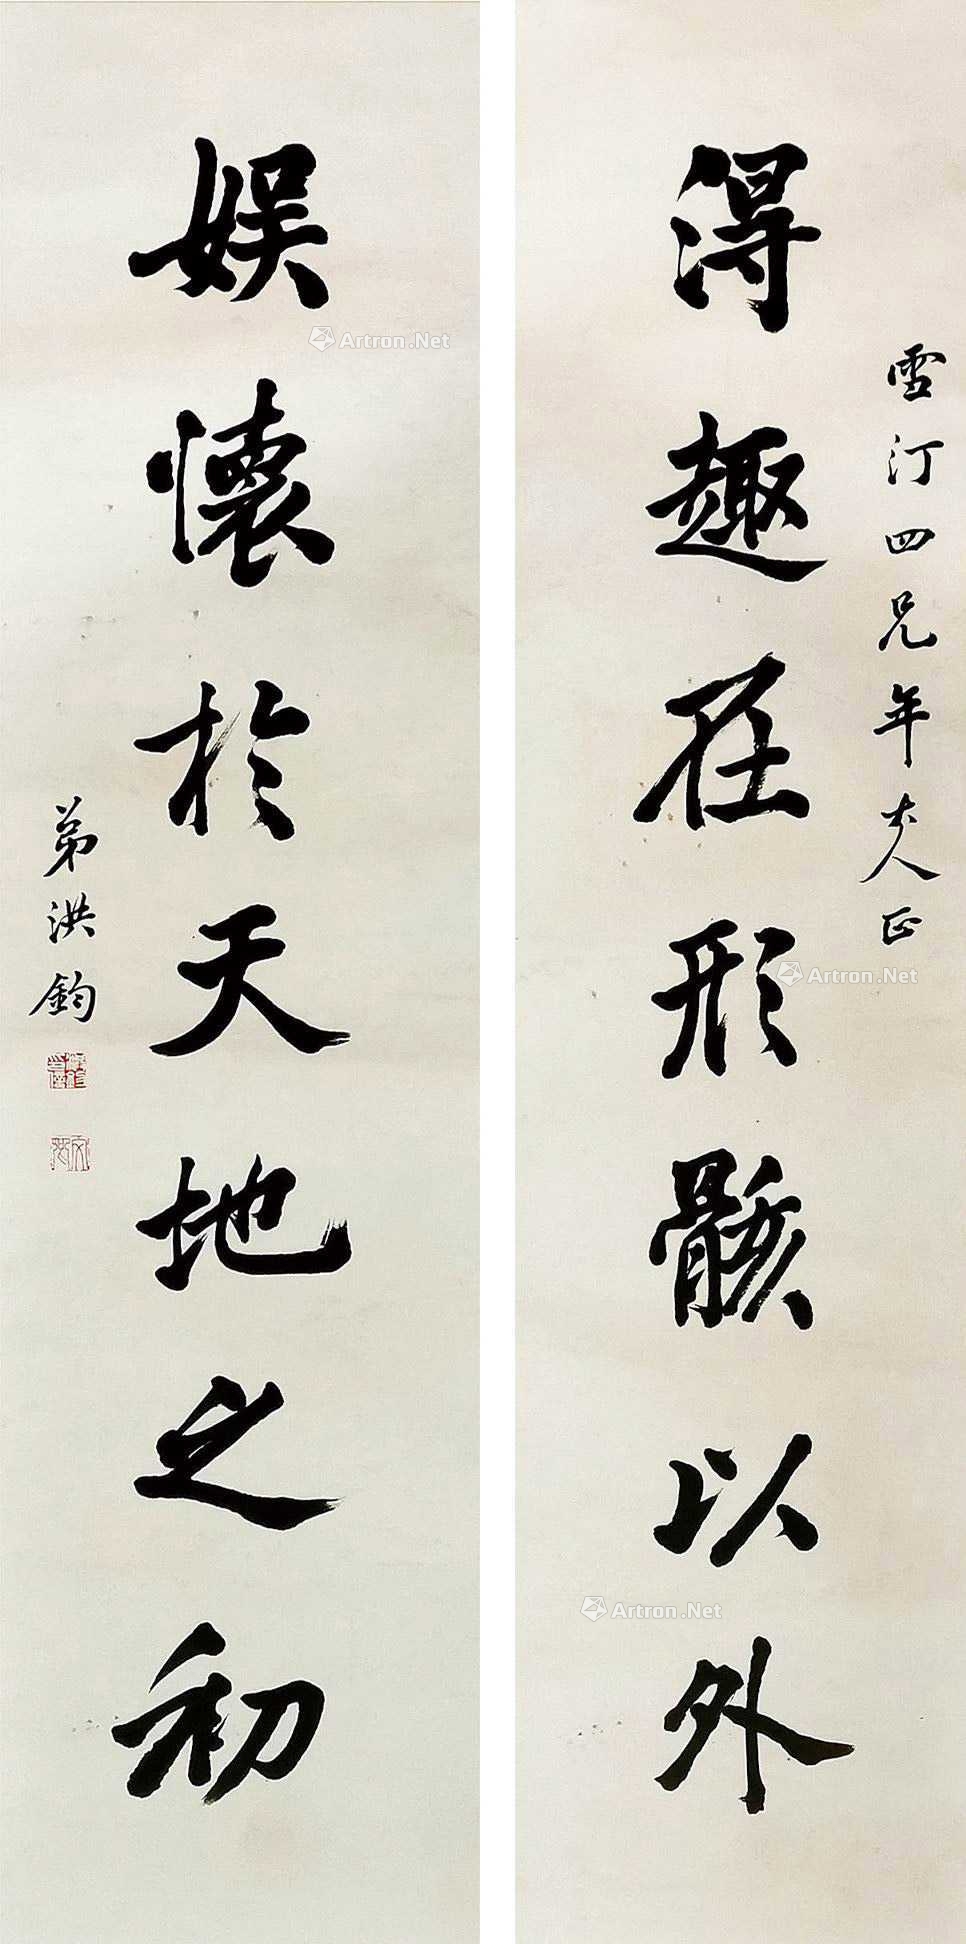 得趣在形骸以外
雪汀四兄年大人正
娱懷於天地之初
弟洪鈞
Artron.Net
Artron.Net
Artron.Net